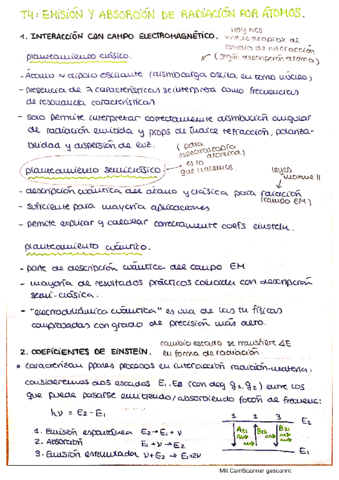 T4: EMISIÓN Y ABSORCIÓN DE RADIACIÓN POR ÁTOMOS.
1. INTERACCIÓN CON CAMPO ELECTROMAGNÉTICO.
Hay tres
niveles de aprox de
estudio de interacción
(según descripción átomo)
planteamiento clásico.
- Átomo ~ dipolo oscilante (distrib carga oscila en torno núcleo)
- presencia de λ características se interpreta como frecuencias
de resonancia características
- solo permite interpretar correctamente distribución angular
de radiación emitida y props de índice refracción, polariza-
bilidad y dispersión de luz.
(para espectroscopía atómica)
planteamiento semiclásico.
es lo que hacemos
leyes
- descripción cuántica del átomo y clásica para radiación
(campo EM)
- suficiente para mayoría aplicaciones
- permite explicar y calcular correctamente coefs einstein.
planteamiento cuántico.
- parte de descripción cuántica del campo EM
- mayoría de resultados prácticos coinciden con descripción
semi-clásica.
- "electrodinámica cuántica" es una de las tª físicas
comprobadas con grado de precisión más alto.
cambio estado se transfiere ΔE
en forma de radiación
2. COEFICIENTES DE EINSTEIN.
• caracterizan posibles procesos en interacción radiación-materia:
consideremos dos estados E1, E2 (con deg g1, g2) entre los
que puede pasarse emitiendo/absorbiendo fotón de frecuenc:
hν = E2 - E1
1. Emisión espontánea E2 → E1 + ν
2. Absorción E1 + ν → E2
3. Emisión estimulada ν + E2 → E1 + 2ν
1 2 3
E2
A21 B12 B21
E1
Mit CamScanner gescannt